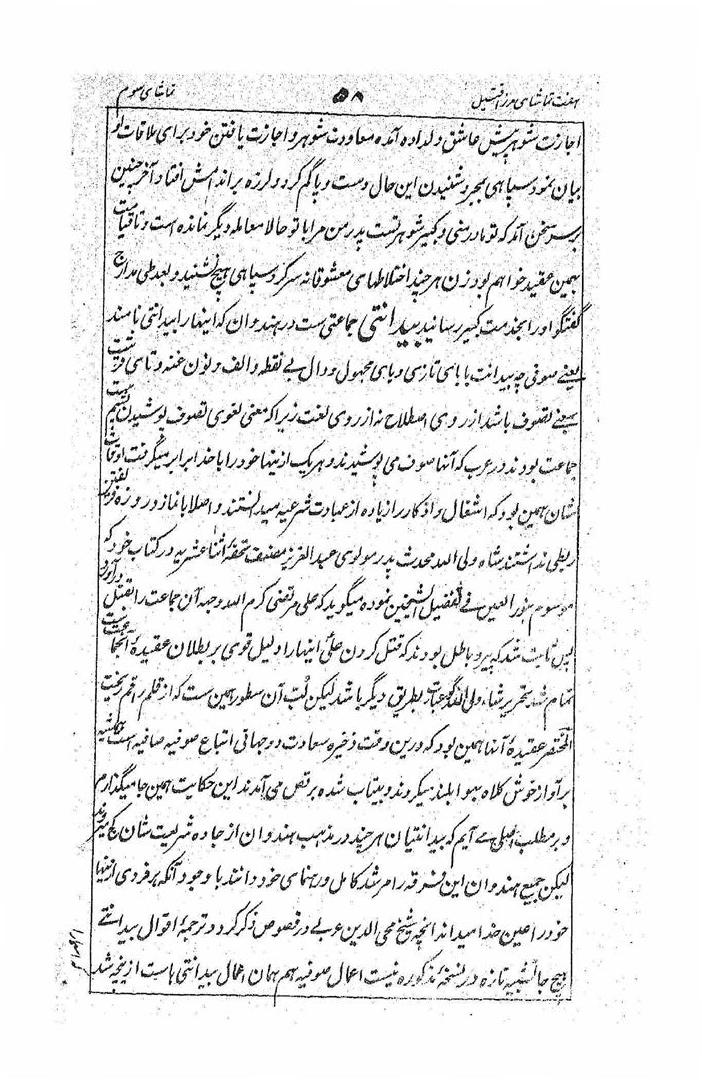 هفت تماشای مرزا قتیل ۵۸ تماشای سوم
اجازت شوهر پیش عاشق دلداده آمده معاودت شوهر و اجازت یافتن خود برای ملاقات او
بیان نمود سپاهی بمجرد شنیدن این حال دست و پا گم کرد و لرزه بر اندامش افتاد آخر چنین
بر سر سخن آمد که تو مادر منی و کبیر شوهر تست پدر من مرا با تو حالا معامله دیگر نمانده است و تا قیامت
بهمین عقیده خواهم بود زن هر چند اختلاطهای معشوقانه سر کرد سپاهی هیچ نشنید و بعد طی مدارج
گفتگو او را بخدمت کبیر رسانید بیدانتی جماعتی ست در هندوان که اینها را بیدانتی نامند
یعنی صوفی چه بیدانت با بای تازی و یای مجهول و دال بی نقطه و الف و نون غنه و تای قرشت
بمعنی تصوف باشد از روی اصطلاح نه از روی لغت زیرا که معنی لغوی تصوف پوشیدن پشم است
جماعت بودند در عرب که آنها صوف می پوشیدند و هر یک از اینها خود را با خدا برابر میگرفت اوقات
شان همین بود که اشغال و اذکار را زیاده از عبادت شرعیه میدانستند و اصلا با نماز و روزه
ربطی نداشتند شاه ولی الله محدث پدر مولوی عبد العزیز مصنف تحفهٔ اثنا عشریه در کتاب خود که
موسوم بنور العین فی تفضیل الشیخین نموده میگوید که علی مرتضی کرم الله وجهه آن جماعت را بقتل در آورد
پس ثابت شد که پیرو باطل بودند که قتل کردن علی اینها را دلیل قوی بر بطلان عقیدهٔ آنجماعت است
تمام شد تحریر شاه ولی الله گو عبارت بطریق دیگر باشد لیکن لب آن سطور همین ست که از قلم راقم ریخت
المختصر عقیدهٔ آنها همین بود که درین وقت ذخیره سعادت دو جهانی اتباع صوفیه صافیه است
بر آواز خوش کلاه بهوا بلند میکردند و بیتاب شده برقص می آمدند این حکایت همین جا میگذارم
و بر مطلب اصلی می آیم که بیدانتیان هر چند در مذهب هندوان از جاده شریعت شان کج میروند
لیکن جمیع هندوان این فرقه را مرشد کامل و رهنمای خود دانند با وجود آنکه هر فردی از اینها
خود را عین خدا میداند انچه شیخ محی الدین عربی در فصوص ذکر کرده ترجمهٔ اقوال بیدانتی
هیچ جا تشبیه تازه در نسخهٔ مذکوره نیست اعمال صوفیه هم همان اعمال بیدانتی هاست ازینجه شد